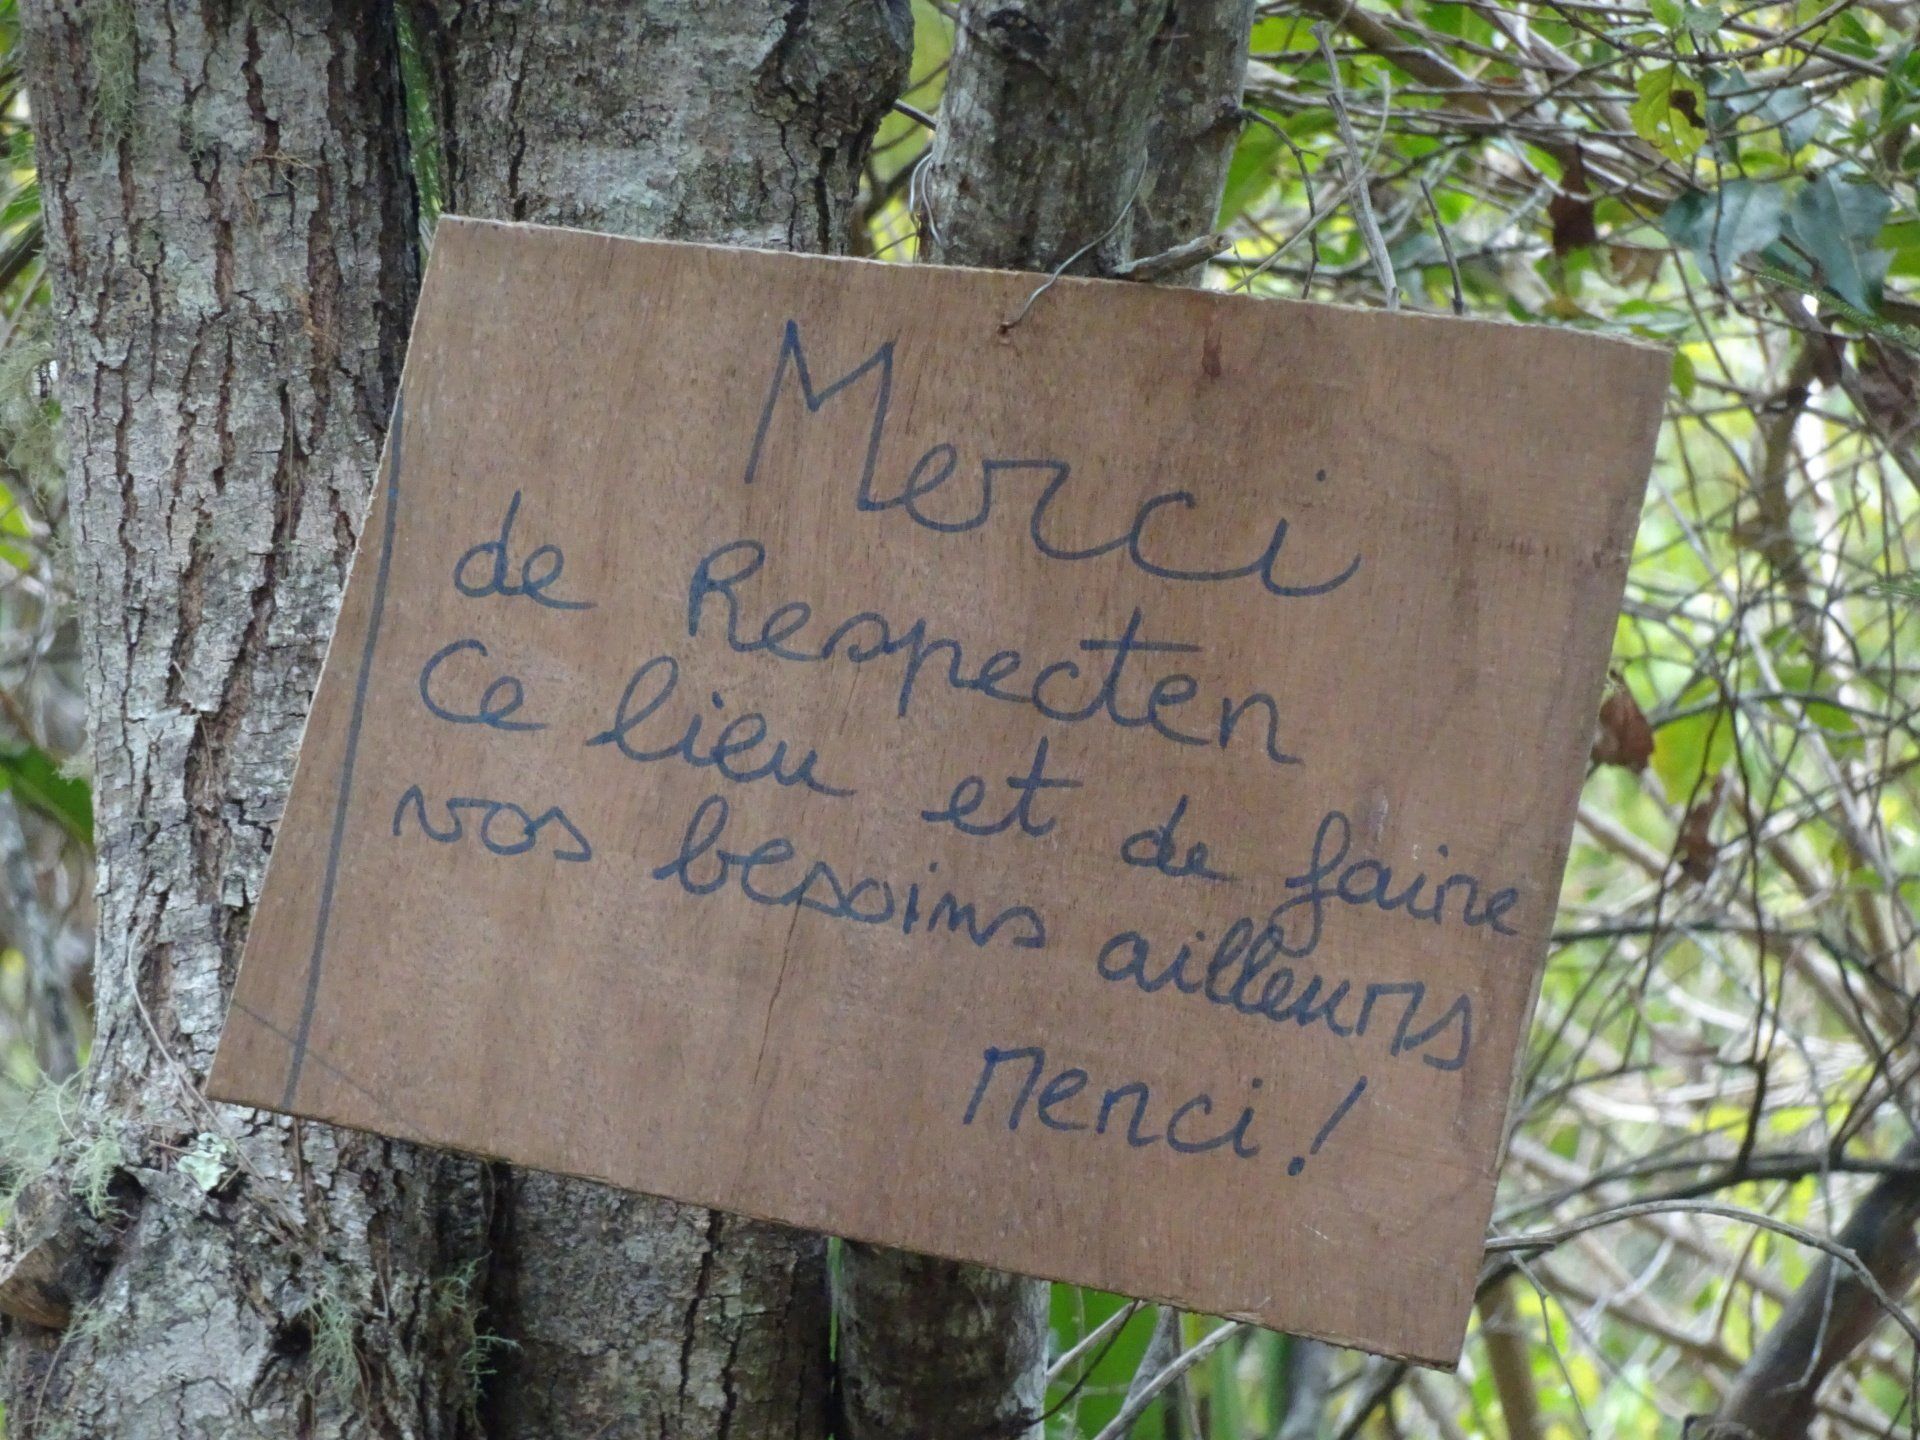 Merci
de Respecter
Ce lieu et de faire
vos besoins ailleurs
Merci !